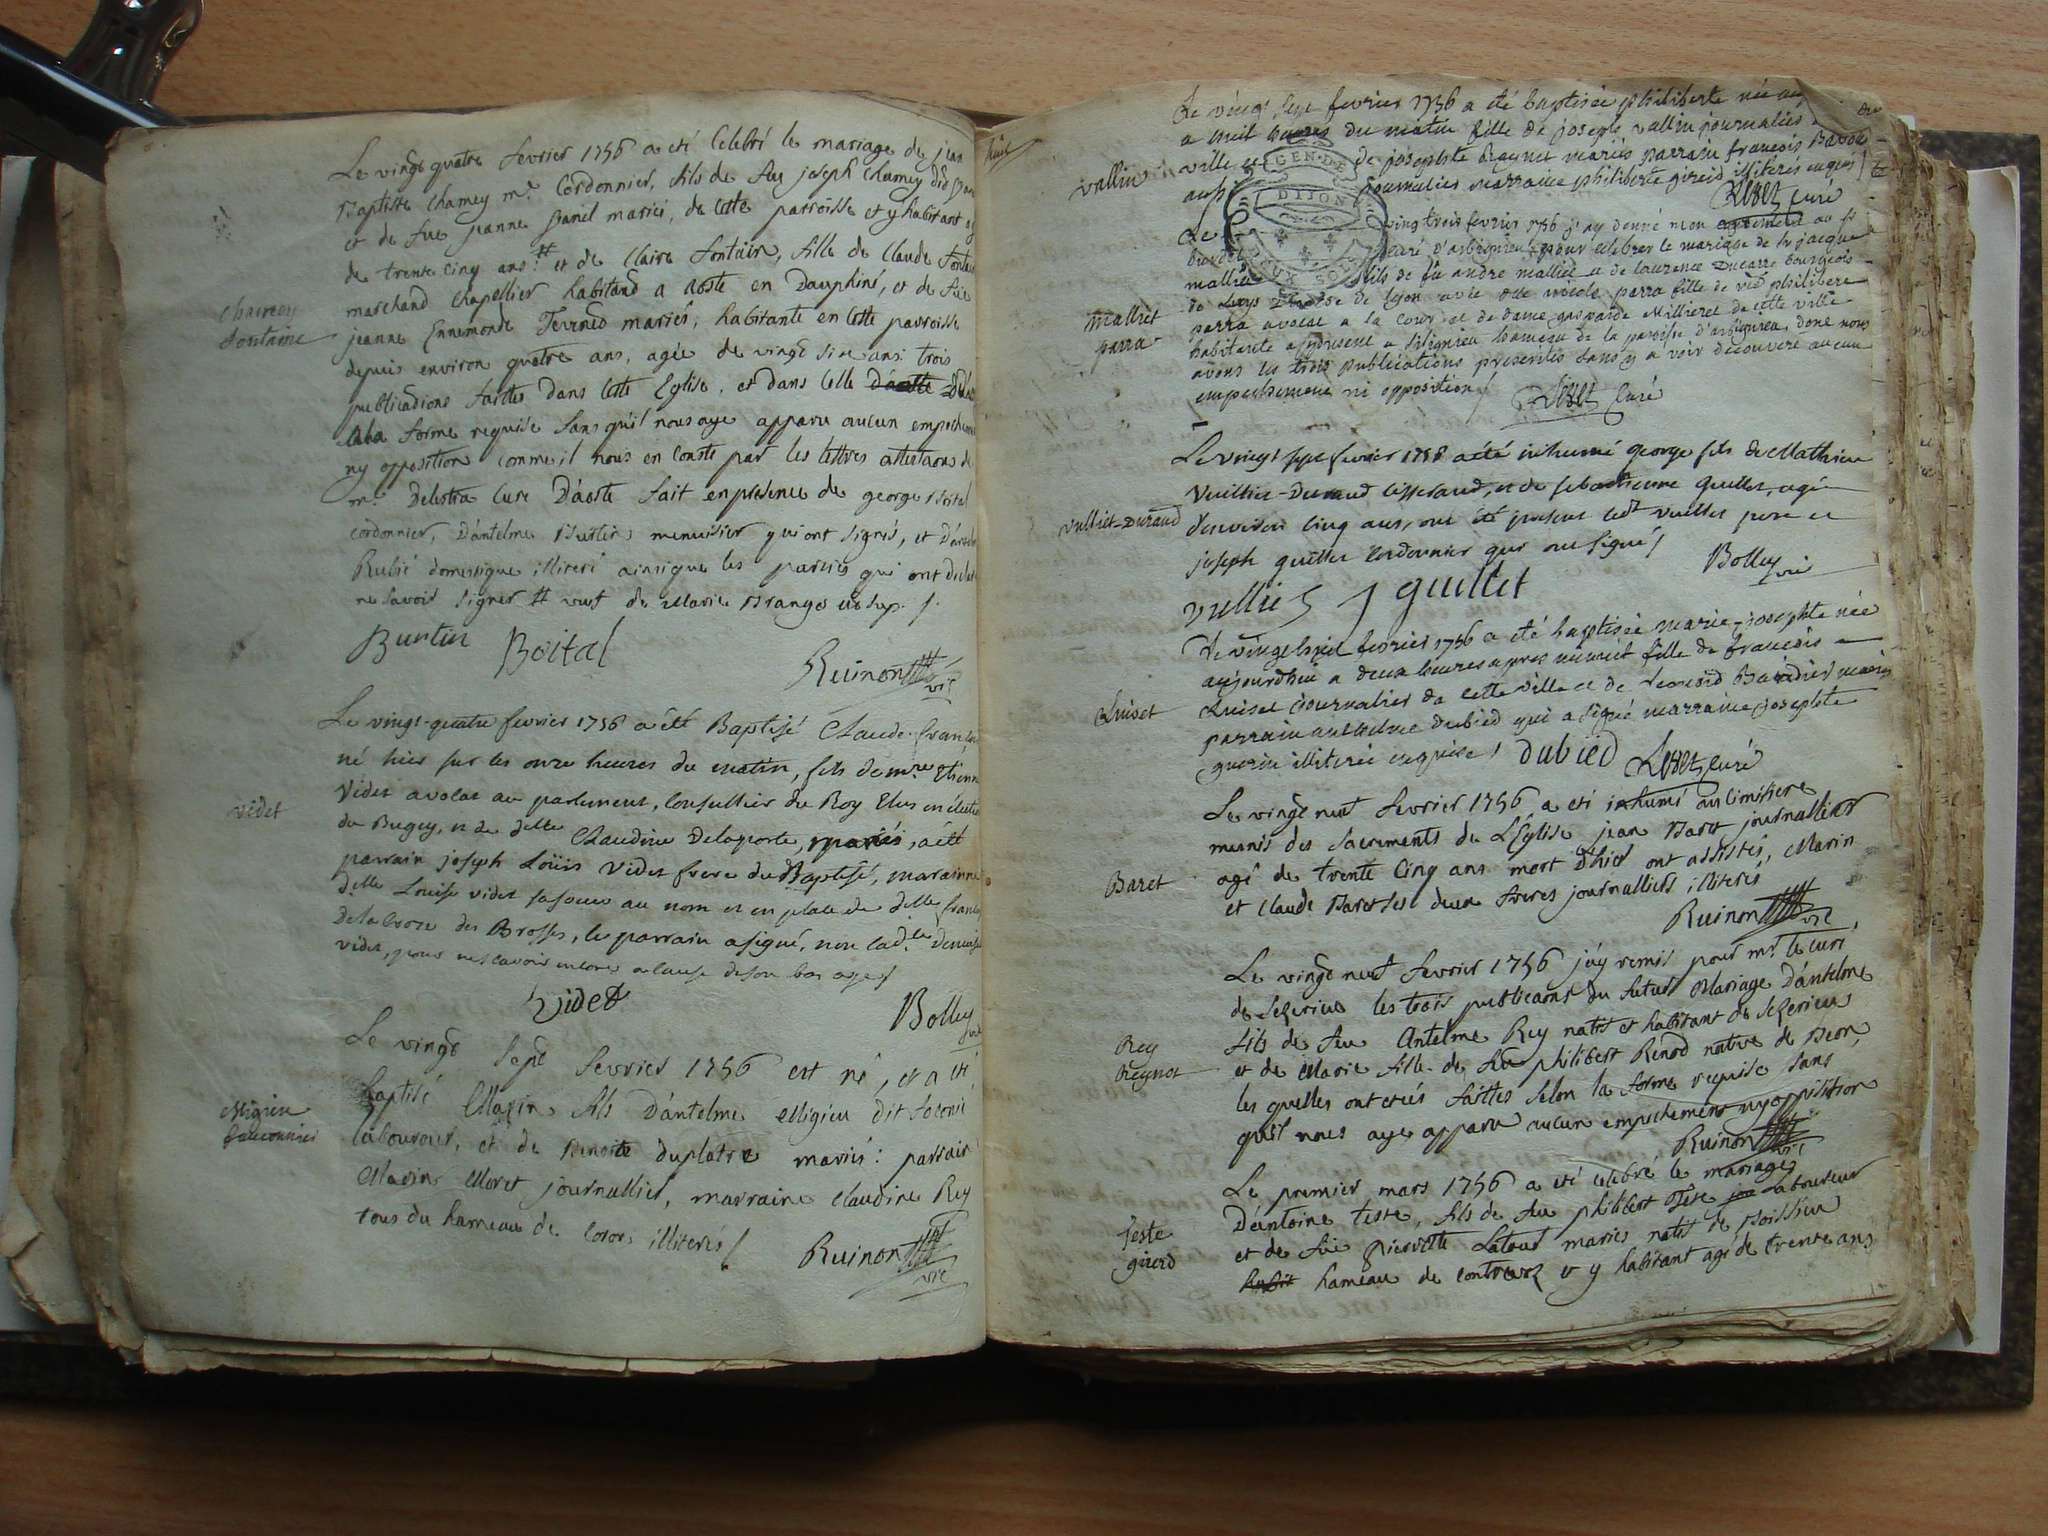 Le vingt quatre fevrier 1756 a eté Celebré le mariage de jean
Baptiste Chamey me. Cordonnier, fils de feu joseph Chamey dit
et de fue jeanne mariés, de cette parroisse et y habitant
de trente cinq ans # et de Claire fontaine, fille de Claude
marchand Chapellier habitand a Aoste en Dauphiné, et de fue
jeanne Ennemonde mariés, habitante en cette parroisse
depuis environ quatre ans, agée de vingt six ans trois
publications faittes dans cette Eglise, et dans celle
a la forme requise sans qu'il nous aye apparu aucun
ny opposition comme il nous en conste par les lettres
mr. Delestra Curé D'aoste fait en presence de george
cordonnier, D'antelme Burtin menuisier qui ont signés, et
Rubié domestique illiteré ainsi que les parties qui ont
ne savoir signer # veuf de Marie
Burtin Boital
Ruinon vic
Chamey
fontaine
Le vingt-quatre fevrier 1756 a été Baptisé Claude
né hier sur les onze heures du matin, fils de mre Etienne
videt avocat au parlement, Conseillier du Roy Elus en
du Bugey, et de delle Claudine Delaporte, mariés, a été
parrain joseph Loüis videt frere du Baptisé, maraine
delle Louise videt sa soeur au nom et en place de delle
Delabroze des Brosses, le parrain a signé, non lad.te
videt, pour ne scavoir encore a cause de son bas age/
videt
Bolley
vic
videt
Le vingt sept fevrier 1756 est né, et a eté
baptisé Marin fils D'antelme Migieu dit
laboureur, et de Benoite duplatre mariés: parrain
Marin Moret journallier, marraine Claudine Rey
tous du hameau de Coron illiterés/
Ruinon
vic
Migieu
fauconnier
huit
Le vingt sept fevrier 1756 a été baptisée philiberte née
a huit heures du matin fille de joseph vallin journalier
ville et de josephte Reynet mariés parrain francois
journalier marraine philiberte gireid illiterés enquis/
Revet Curé
vallin
GEN DE
DIJON
vingt trois fevrier 1756 j'ay donné mon au
curé d'arbignieu pour celebrer le mariage de sr jacque
malliet fils de fû andré malliet et de laurence Ducarre bourgeois
de Lyon avec delle nicole parra fille de philibere
parra avocat a la cour et de dame gasparde Millieret de cette ville
habitante a present a Silignieu hameau de la paroisse d'arbignieu, dont nous
avons les trois publications prescrites sans y avoir decouvert aucun
empechement ni opposition/
Revet Curé
malliet
parra
Le vingt sept fevrier 1756 a été inhumé george fils de Mathieu
Vulliet-Durand tisserand, et de sebastienne Guillet, agé
d'environ cinq ans, ont été presens ledt vulliet pere et
joseph guillet cordonnier qui ont signé/
Bolley
vic
vulliet j guillet
vulliet-Durand
Le vingt huit fevrier 1756 a été baptisée marie-josephte née
aujourdhui a deux heures apres minuit fille de francois
Luiset journalier de cette ville et de mariés
parrain anthelme Dubied qui a signé marraine josephte
guerin illiterée enquise/ Dubied Revet Curé
Luiset
Le vingt neuf fevrier 1756 a eté inhumé au cimitiere
munis des Sacrements de L'Eglise jean Baret journallier
agé de trente cinq ans mort d'hier ont assistés, Marin
et Claude Baret ses deux freres journalliers illiterés
Ruinon
vic
Baret
Le vingt neuf fevrier 1756 j'ay remis pour mr. le curé
de Sezerieu les trois publicaons du futur Mariage D'antelme
fils de feu Antelme Rey natif et habitant de Sezerieu
et de Marie fille de feu philibert Renod native de Beon,
les quelles ont etés faittes selon la forme requise sans
qu'il nous aye apparu aucun empechement ny opposition
Ruinon
vic
Rey
Reynot
Le premier mars 1756 a eté celebré le mariage
D'antoine teste, fils de feu philibert teste laboureur
et de fue pierrette Latour mariés natif de
hameau de contrevoz et y habitant agé de trente ans
teste
gireid